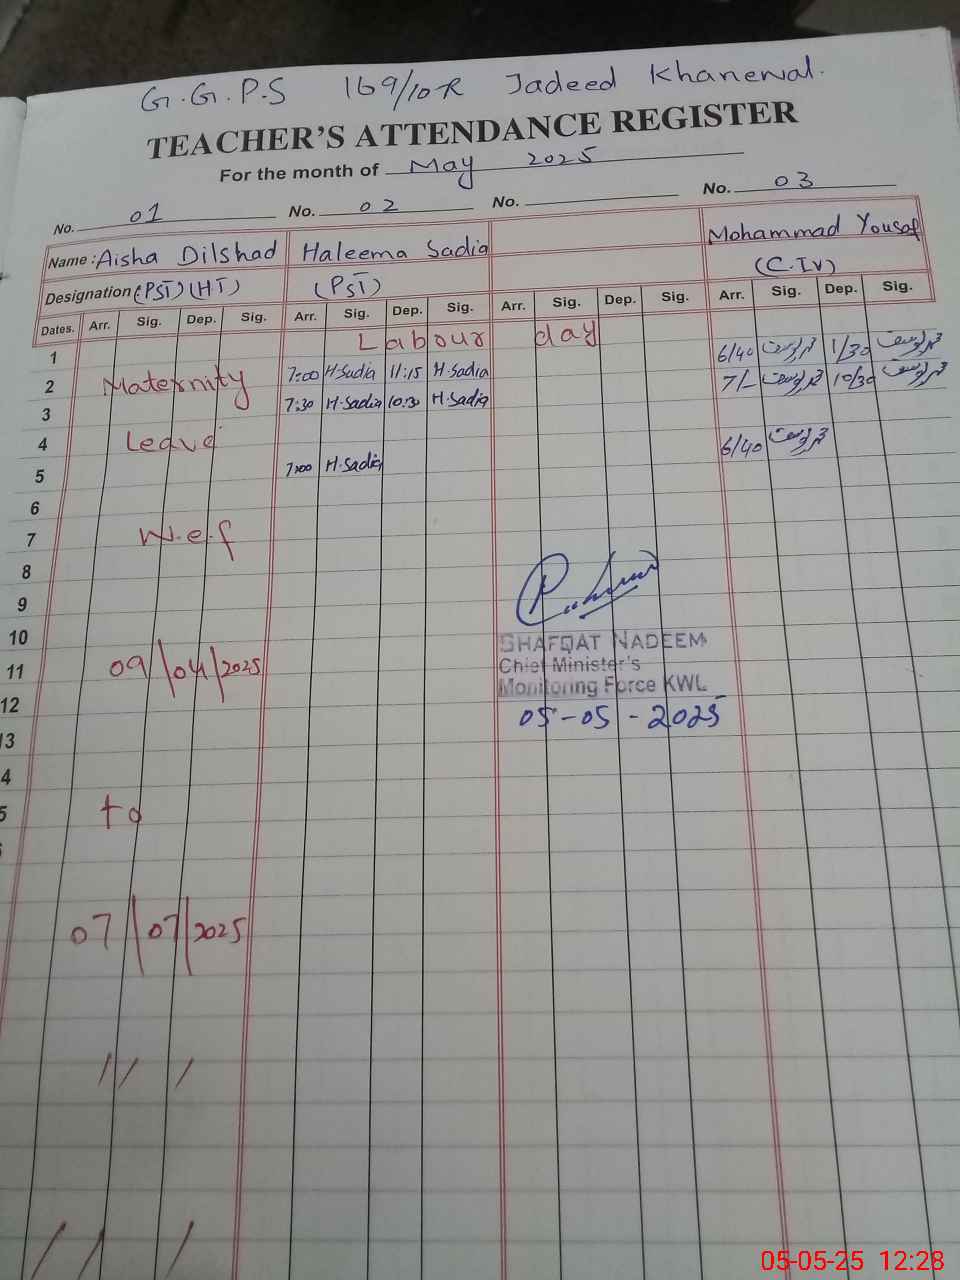 G.G.P.S 169/10-R Jadeed Khanewal.
TEACHER'S ATTENDANCE REGISTER
For the month of May 2025
No. 01 No. 02 No. No. 03
Name: Aisha Dilshad Haleema Sadia Mohammad Yousaf
Designation (PST) (HT) (PST) (C.IV)
Dates. Arr. Sig. Dep. Sig. Arr. Sig. Dep. Sig. Arr. Sig. Dep. Sig. Arr. Sig. Dep. Sig.
1 Labour day
2 Maternity 7:00 H.Sadia 11:15 H.Sadia 6/40 محمد یوسف 1/30 محمد یوسف
3 7:30 H.Sadia 10:30 H.Sadia 7/- محمد یوسف 10/30 محمد یوسف
4 Leave
5 7:00 H.Sadia 6/40 محمد یوسف
6
7 W.e.f
8
9
10
SHAFQAT NADEEM
11 09/04/2025 Chief Minister's
Monitoring Force KWL
12 05-05-2025
13
4
5 to
07/07/2025
05-05-25 12:28